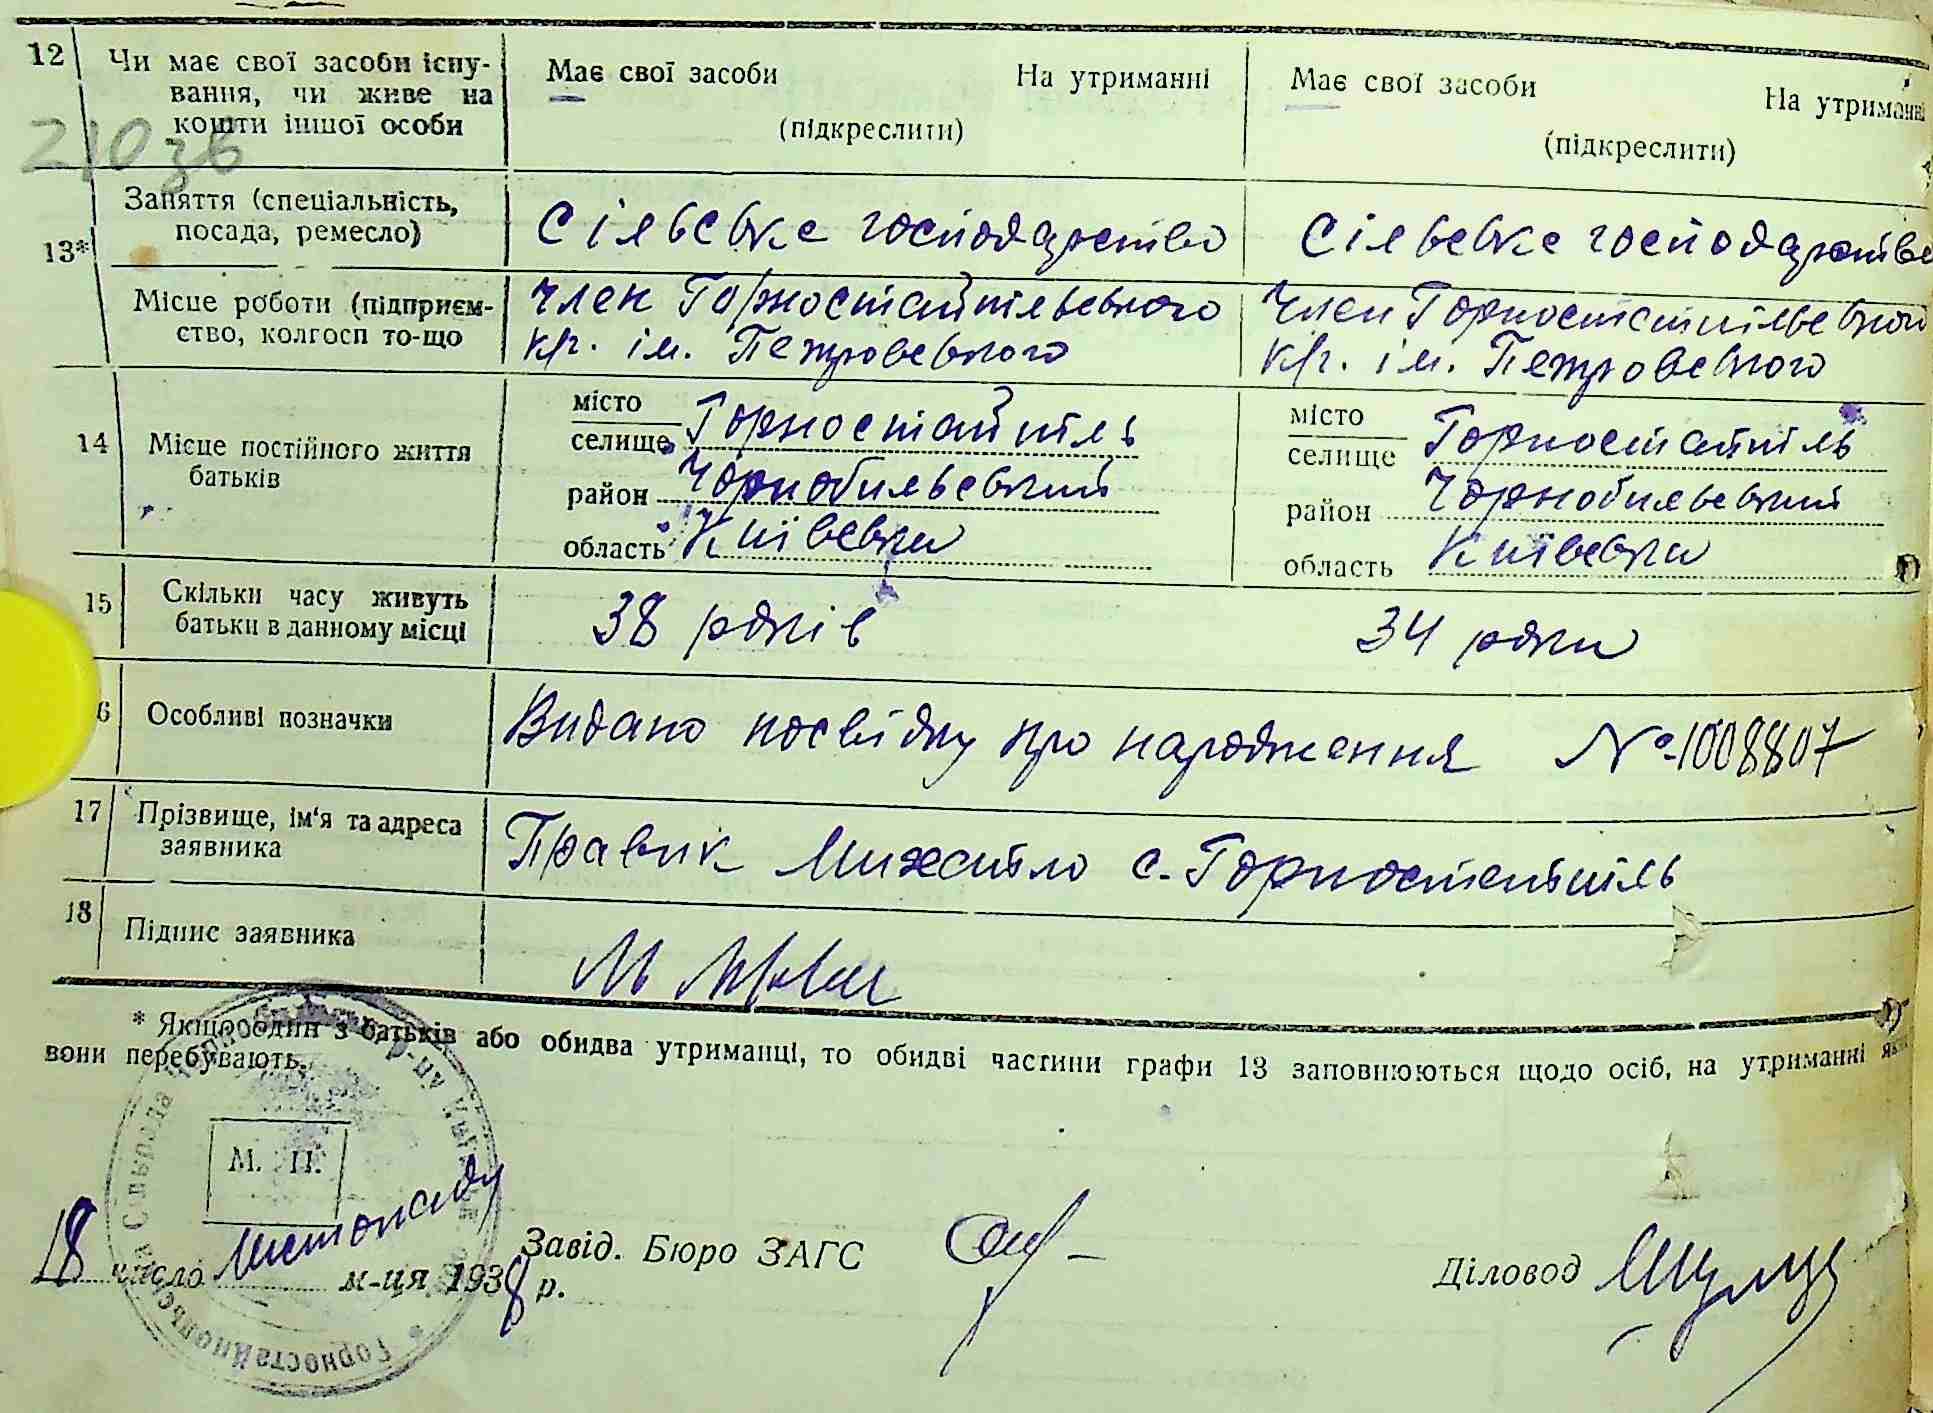 12 Чи має свої засоби існу-
вання, чи живе на
кошти іншої особи
Має свої засоби На утриманні
(підкреслити)
Має свої засоби На утриманні
(підкреслити)
210 зв
13*
Заняття (спеціальність,
посада, ремесло)
Сільське господарство
Сільське господарство
Місце роботи (підприєм-
ство, колгосп то-що
Член Горностайпільського
кг. ім. Петровського
Член Горностайпільського
кг. ім. Петровського
14 Місце постійного життя
батьків
місто
селище Горностайпіль
район Чорнобильський
область Київська
місто
селище Горностайпіль
район Чорнобильський
область Київська
15 Скільки часу живуть
батьки в данному місці
38 років
34 роки
6 Особливі позначки
Видано посвідку про народження № 1008807
17 Прізвище, ім'я та адреса
заявника
Правик Михайло с. Горностайпіль
18 Підпис заявника
* Якщо один з батьків або обидва утриманці, то обидві частини графи 13 заповнюються щодо осіб, на утриманні яких
вони перебувають.
М. П.
18 число листопаду м-ця 1938 р.
Завід. Бюро ЗАГС
Діловод
Горностайпольська Сільрада